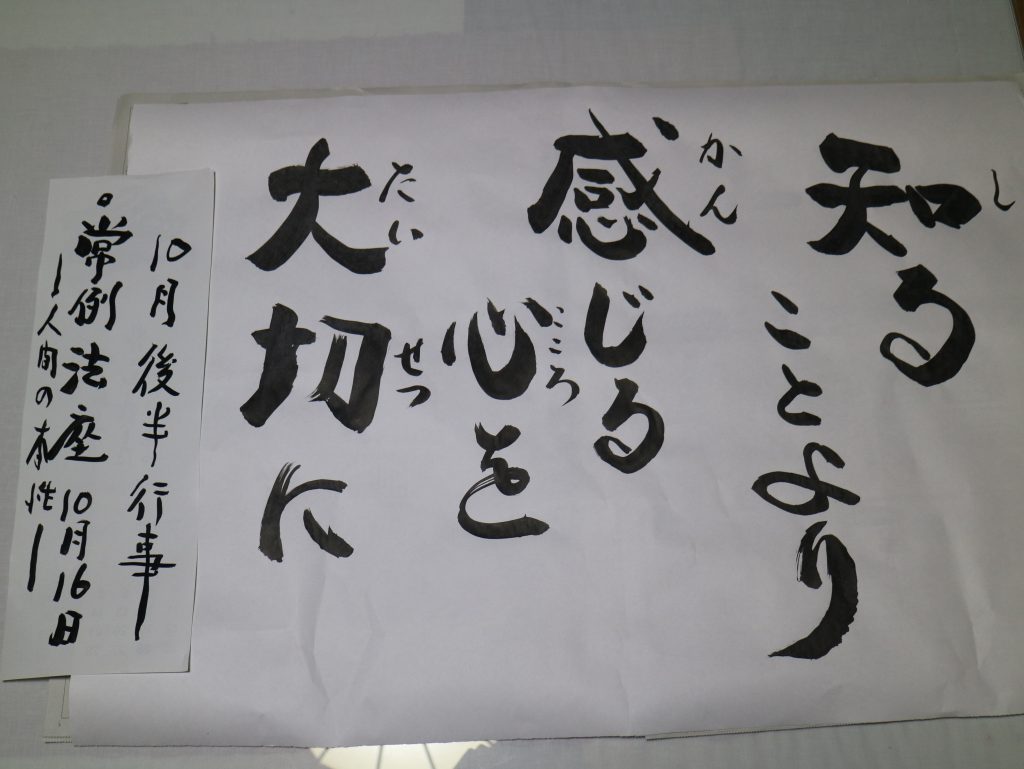 知る
ことより
感じる
心を
大切に
し
かん
こころ
たい
せつ
10月後半行事
。常例法座 10月16日
ー人間の本性ー